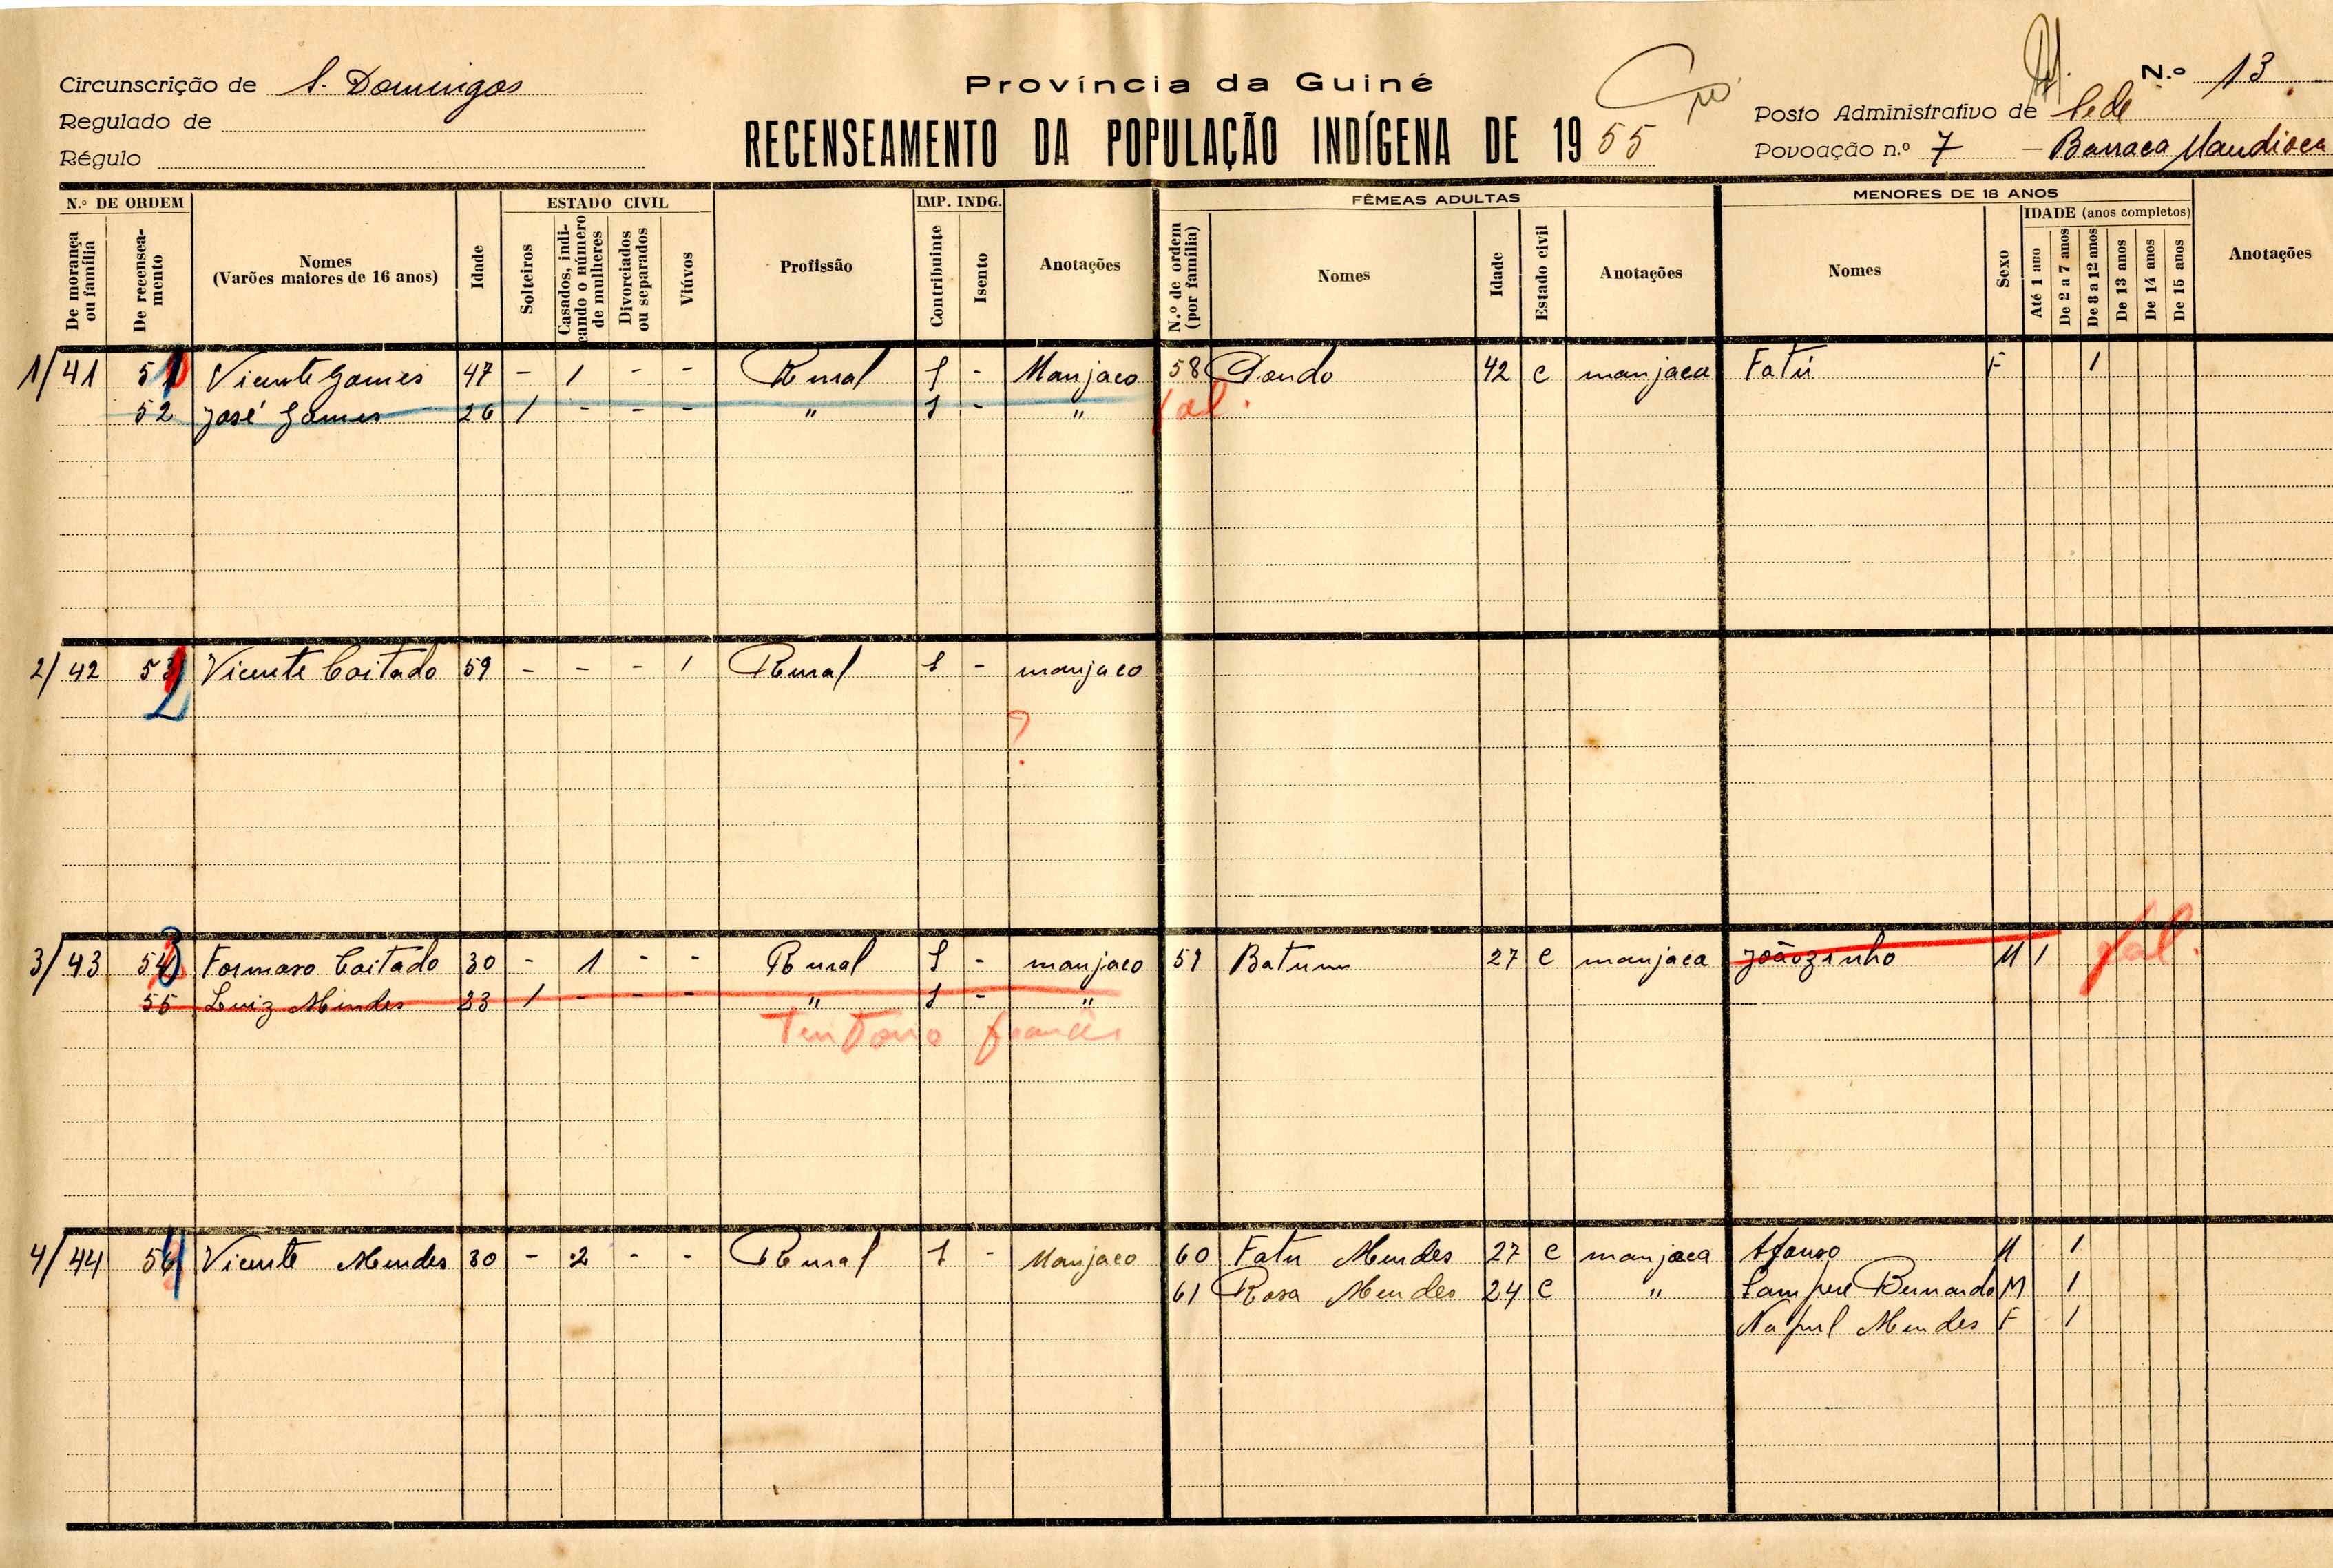 Circunscrição de S. Domingos
Regulado de
Régulo
Província da Guiné
RECENSEAMENTO DA POPULAÇÃO INDÍGENA DE 1955
N.º 13
Posto Administrativo de Sede
Povoação n.º 7 — Barraca Mandioca
N.º DE ORDEM ESTADO CIVIL IMP. INDG. FÊMEAS ADULTAS MENORES DE 18 ANOS
IDADE (anos completos)
De morança ou família De recenseamento Nomes (Varões maiores de 16 anos) Idade Solteiros Casados, indicando o número de mulheres Divorciados ou separados Viúvos Profissão Contribuinte Isento Anotações N.º de ordem (por família) Nomes Idade Estado civil Anotações Nomes Sexo Até 1 ano De 2 a 7 anos De 8 a 12 anos De 13 anos De 14 anos De 15 anos Anotações
1/ 41 51 Vicente Gomes 47 - 1 - - Rural 1 - Manjaco 58 Dondo 42 c manjaca Fatú F 1
52 José Gomes 26 1 - - - " 1 - " fal.
2/ 42 53 Vicente Coitado 59 - - - 1 Rural 1 - manjaco
2
?
3/ 43 54 3 Formoso Coitado 30 - 1 - - Rural 1 - manjaco 59 Batum 27 c manjaca Joãozinho M 1 fal.
55 Luiz Mendes 23 1 - - - " 1 - "
Territorio francês
4/ 44 56 Vicente Mendes 30 - 2 - - Rural 1 - Manjaco 60 Fatu Mendes 27 c manjaca Afonso M 1
61 Rosa Mendes 24 c " Sampere Bernardo M 1
Napul Mendes F 1